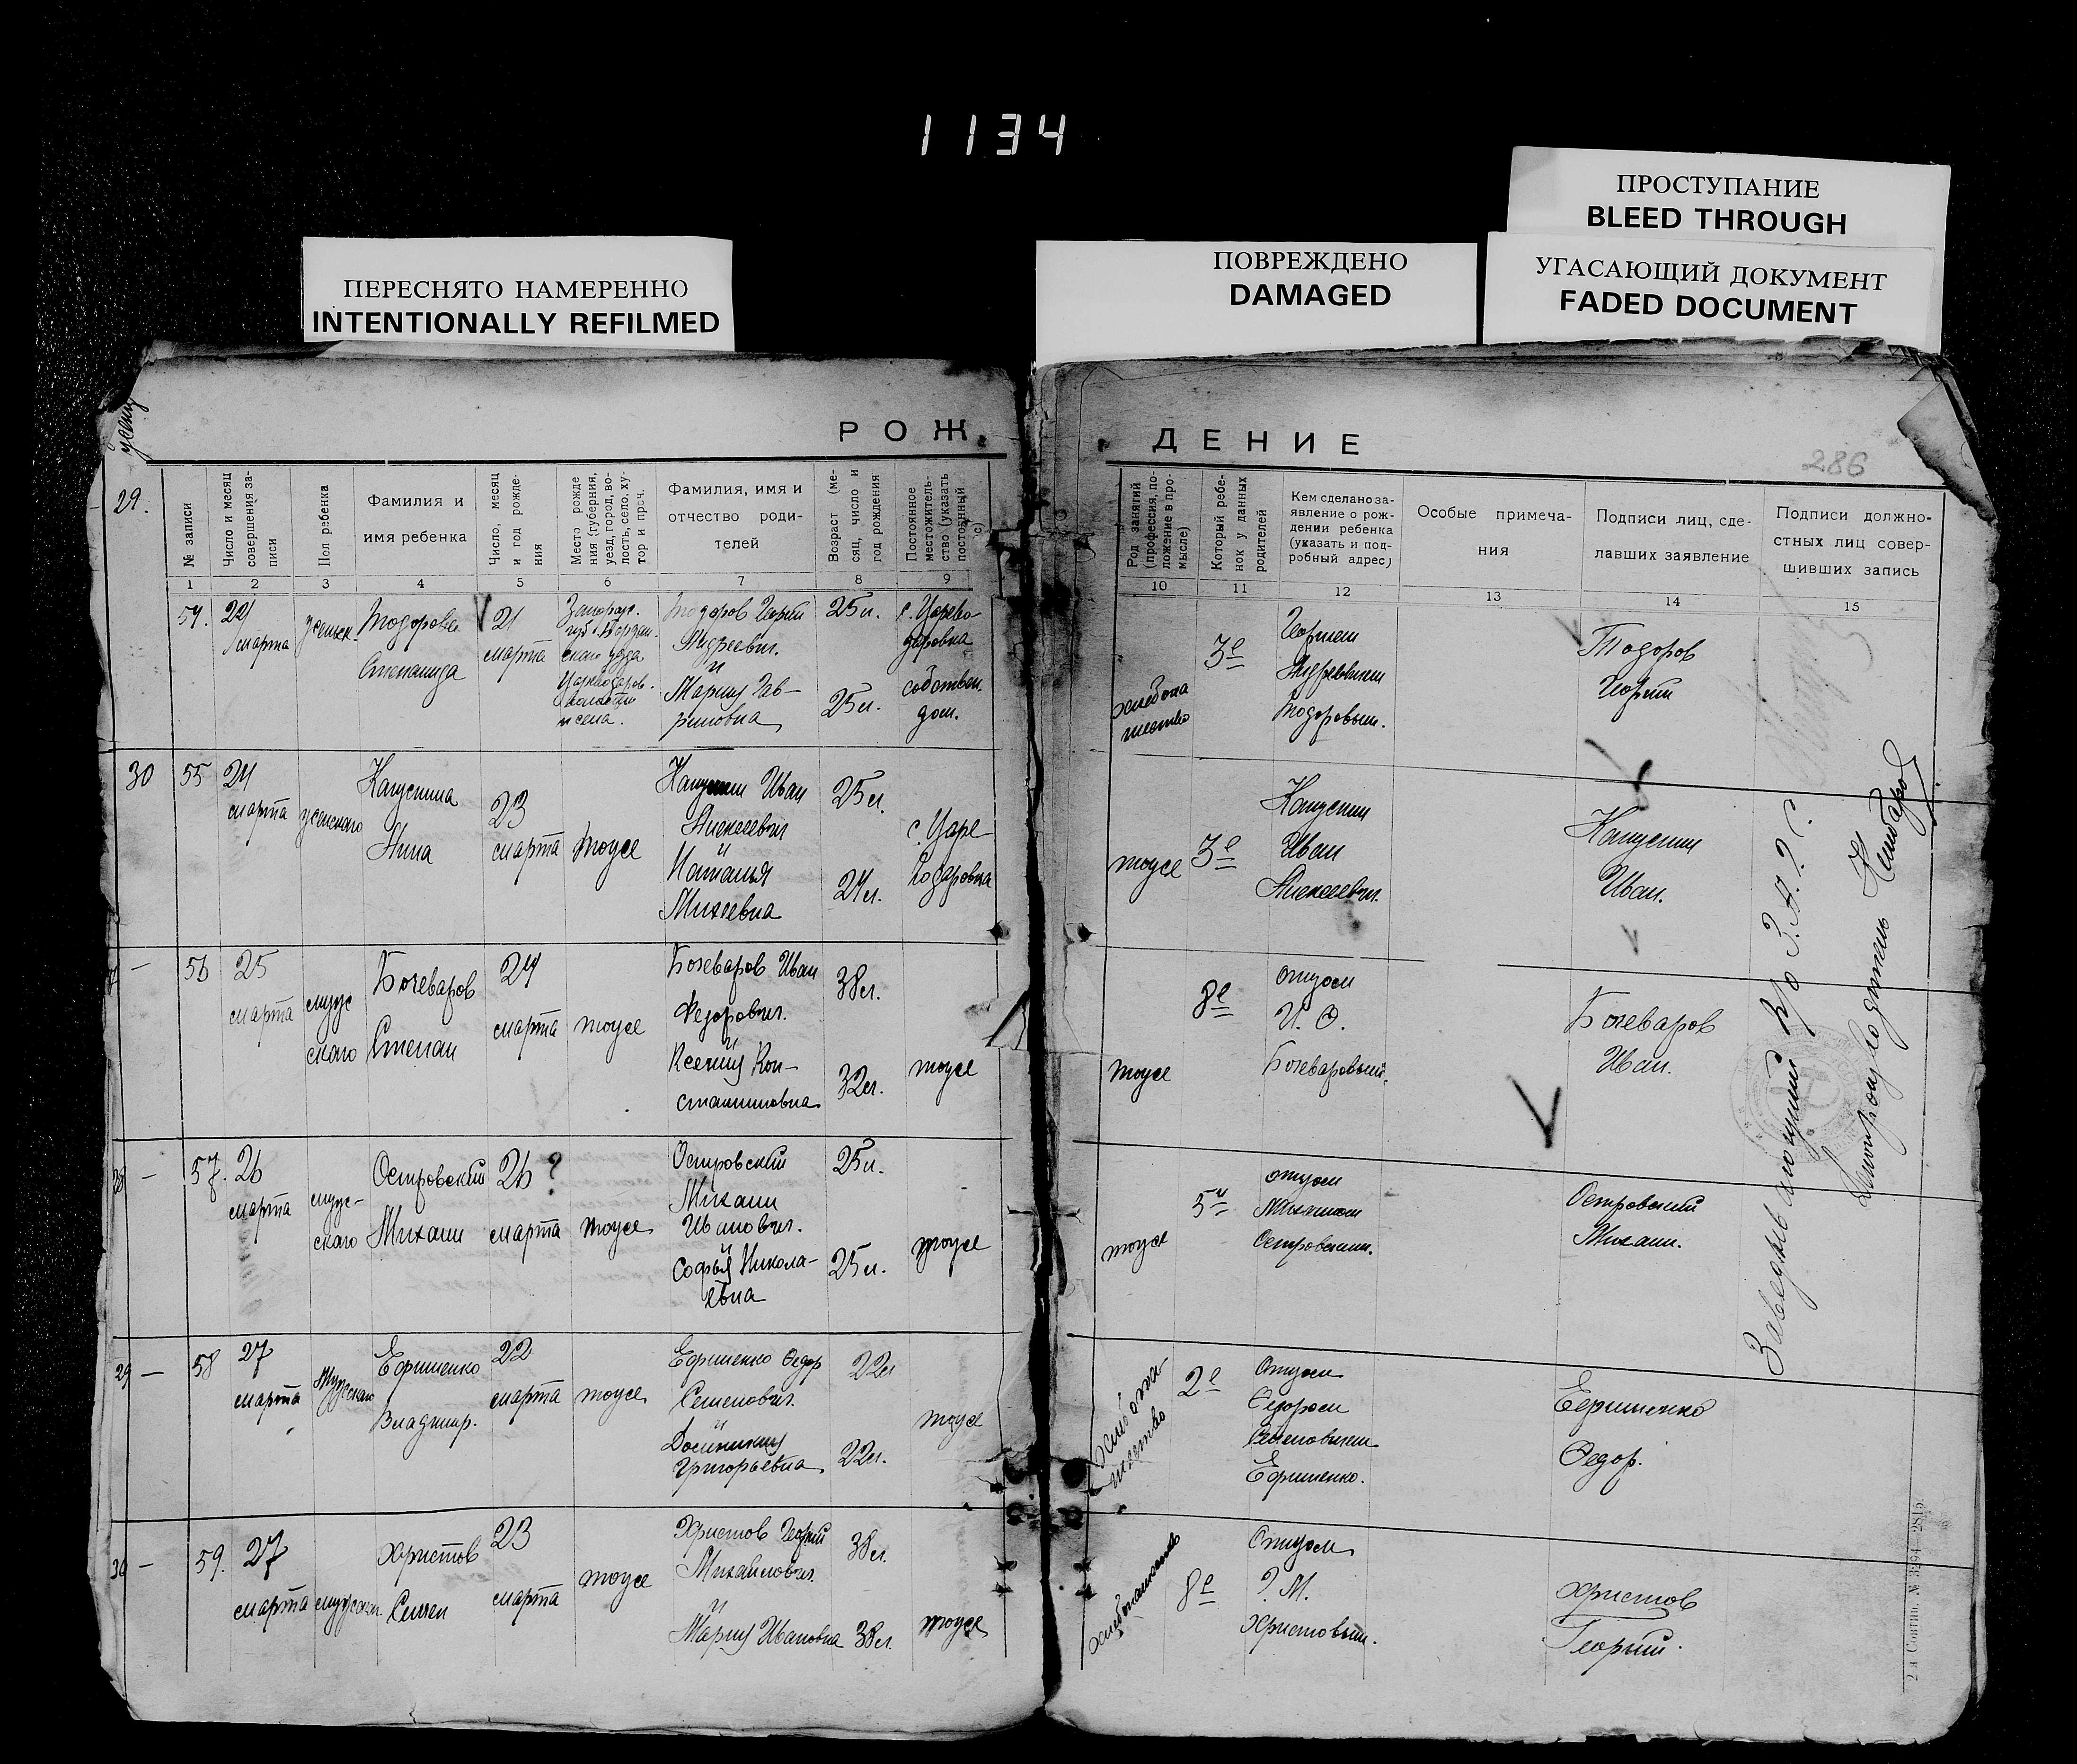 1134
ПРОСТУПАНИЕ
BLEED THROUGH
ПЕРЕСНЯТО НАМЕРЕННО
INTENTIONALLY REFILMED
ПОВРЕЖДЕНО
DAMAGED
УГАСАЮЩИЙ ДОКУМЕНТ
FADED DOCUMENT
РОЖ
ДЕНИЕ
286
29.
№ записи
Число и месяц
совершения за-
писи
Пол ребенка
Фамилия и
имя ребенка
Число, месяц
и год рожде-
ния
Место рожде
ния (губерния,
уезд, город, во-
лость, село, ху-
тор и проч.
Фамилия, имя и
отчество роди-
телей
Возраст (ме-
сяц, число и
год рождения
Постоянное
местожитель-
ство (указать
постоянный
с)
Род занятий
(профессия, по-
ложение в про-
мысле)
Который ребе-
нок у данных
родителей
Кем сделано за-
явление о рож-
дении ребенка
(указать и под-
робный адрес)
Особые примеча-
ния
Подписи лиц, сде-
лавших заявление
Подписи должно-
стных лиц совер-
шивших запись
1 2 3 4 5 6 7 8 9
10 11 12 13 14 15
54.
24
марта
женск.
Тодорова
Степанида
21
марта
Запорож.
губ. Бердян.
ского уезда
волости
и села.
Тодоров Георгий
Андреевич.
и
Мария Гав-
риловна
25 л.
25 л.
с. Царево-
даровка
собствен.
дом.
хлебопа
шество
3е
Георгием
Андреевичем
Тодоровым.
Тодоров
Георгий
30
55
24
марта
женского
Капустина
Анна
23
марта
тоже
Капустин Иван
Алексеевич
и
Наталья
Михеевна
25 л.
24 л.
с. Царе
водаровка
тоже
3е
Капустин
Иван
Алексеевич.
Капустин
Иван.
56
25
марта
мужс
скаго
Бочеваров
Степан
24
марта
тоже
Бочеваров Иван
Федорович.
и
Ксения Кон-
стантиновна
38 л.
32 л.
тоже
тоже
8е
отцом
И. Ф.
Бочеваровым.
Бочеваров
Иван.
57.
26
марта
мужс-
скаго
Островский
Михаил
26 ?
марта
тоже
Островский
Михаил
Иванович.
и
Софья Никола-
евна
25 л.
25 л.
тоже
тоже
5й
отцом
Михаилом
Островским.
Островский
Михаил.
29
58
27
марта
Мужскаго
Ефименко
Владимир.
22
марта
тоже
Ефименко Федор
Семенович.
и
Григорьевна
22 л
22 л.
тоже
хлебопа-
шество
2е
Отцом
Федором
Семеновичем
Ефименко.
Ефименко
Федор.
30
59.
27
марта
мужского
Христов
Семен
23
марта
тоже
Христов Георгий
Михайлович.
и
Мария Ивановна
38 л.
38 л.
тоже
хлебопашество
8е
Отцом
Г. М.
Христовым.
Христов
Георгий.
Заведывающий
Делопроизводитель